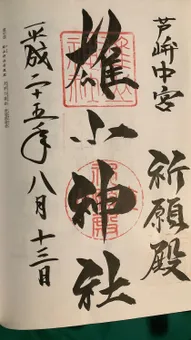 芦峅中宮
祈願殿
雄山神社
平成二十五年八月十三日